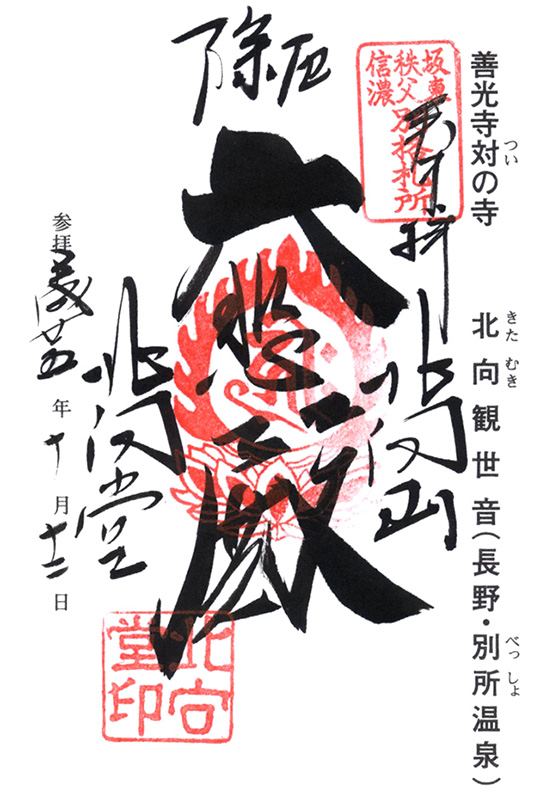 善光寺対の寺 北向観世音(長野・別所温泉)
つい
きた むき
べっ しょ
坂東
秩父別格札所
信濃
奉拝
北向山
除厄
大悲殿
北向堂
参拝 年十月十二日
北向
堂印